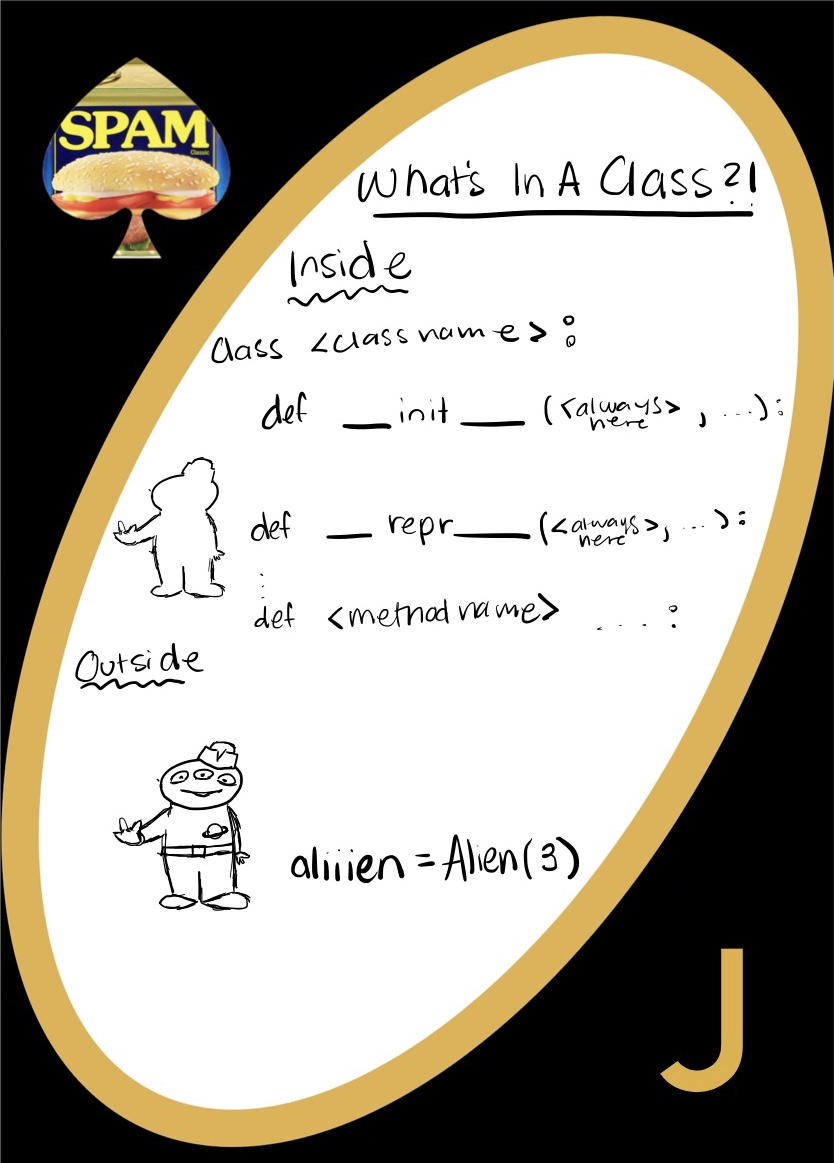 SPAM
Classic
What's In A Class?!
Inside
class <classname>:
def __init__(<always here>, ...):
def __repr__(<always here>, ...):
⋮
def <methodname> ....:
Outside
aliiien = Alien(3)
J